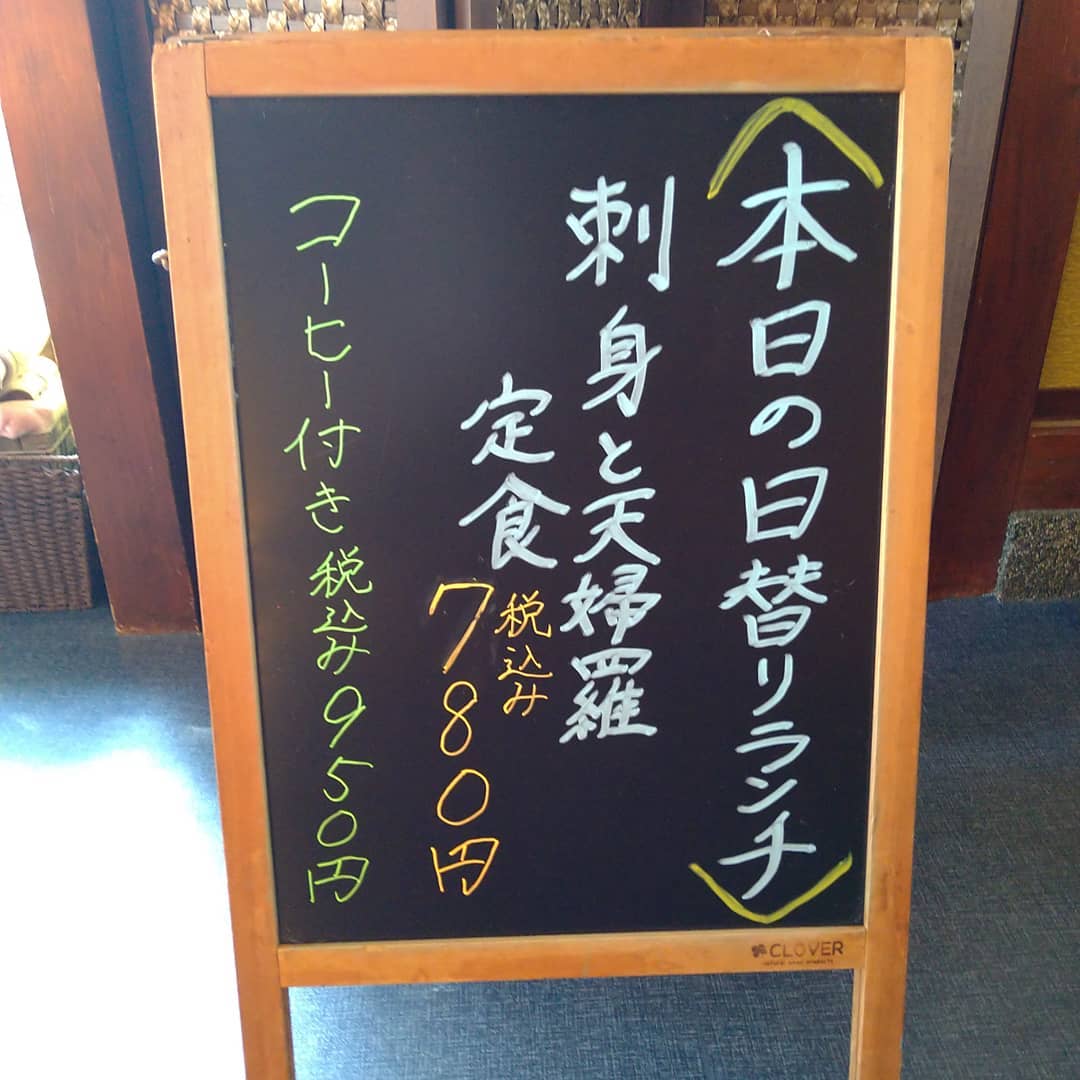 〈本日の日替りランチ〉
刺身と天婦羅
定食
税込み
780円
コーヒー付き税込み950円
CLOVER